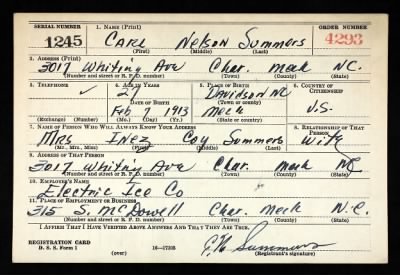 SERIAL NUMBER 1. NAME (Print) ORDER NUMBER
1245 Carl Nelson Summers 4293
(First) (Middle) (Last)
2. ADDRESS (Print)
3017 Whiting Ave Char. Meck NC.
(Number and street or R. F. D. number) (Town) (County) (State)
3. TELEPHONE 4. AGE IN YEARS 5. PLACE OF BIRTH 6. COUNTRY OF CITIZENSHIP
27 Davidson NC
DATE OF BIRTH (Town or county)
Feb 7 1913 Meck U.S.
(Exchange) (Number) (Mo.) (Day) (Yr.) (State or country)
7. NAME OF PERSON WHO WILL ALWAYS KNOW YOUR ADDRESS 8. RELATIONSHIP OF THAT PERSON
Mrs Inez Coy Summers Wife
(Mr., Mrs., Miss) (First) (Middle) (Last)
9. ADDRESS OF THAT PERSON
3017 Whiting Ave Char. Meck NC
(Number and street or R. F. D. number) (Town) (County) (State)
10. EMPLOYER'S NAME
Electric Ice Co
11. PLACE OF EMPLOYMENT OR BUSINESS
315 S. McDowell Char. Meck N.C.
(Number and street or R. F. D. number) (Town) (County) (State)
I AFFIRM THAT I HAVE VERIFIED ABOVE ANSWERS AND THAT THEY ARE TRUE.
REGISTRATION CARD
D. S. S. Form 1 (over) 16—17105 (Registrant's signature)
Summers